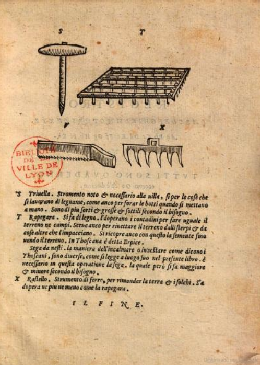 S T
V X
BIBLIOTH
DE LA
VILLE DE
LYON
S Trivella. Stromento noto & necessario alla villa, si per le cose che
si lavorano di legname, come anco per forar le botti quando si mettono
a mano. Sono di piu sorti & grosse & sottili secondo il bisogno.
T Rapegara. Si fa di legna. L'adoperano i contadini per fare uguale il
terreno ne campi. Serve anco per nettare il terreno dalli sterpi & da
ciò che altro che l'impacciano. Si ricopre anco con questo la semente fatta
nando il terreno. In Thoscana è detta Erpice.
Sega da nesti. la maniera dell'incalmare o innestare come dicono
Thoscani, sono diverse, come si legge a luogo suo nel presente libro. è
necessario in questa operatione la sega. la quale però si fa maggiore
& minore secondo il bisogno.
X Rastello. Stromento di ferro, per rimondar la terra & i solchi. S'a
dopera ne piu ne meno come la rapegara.
IL FINE.